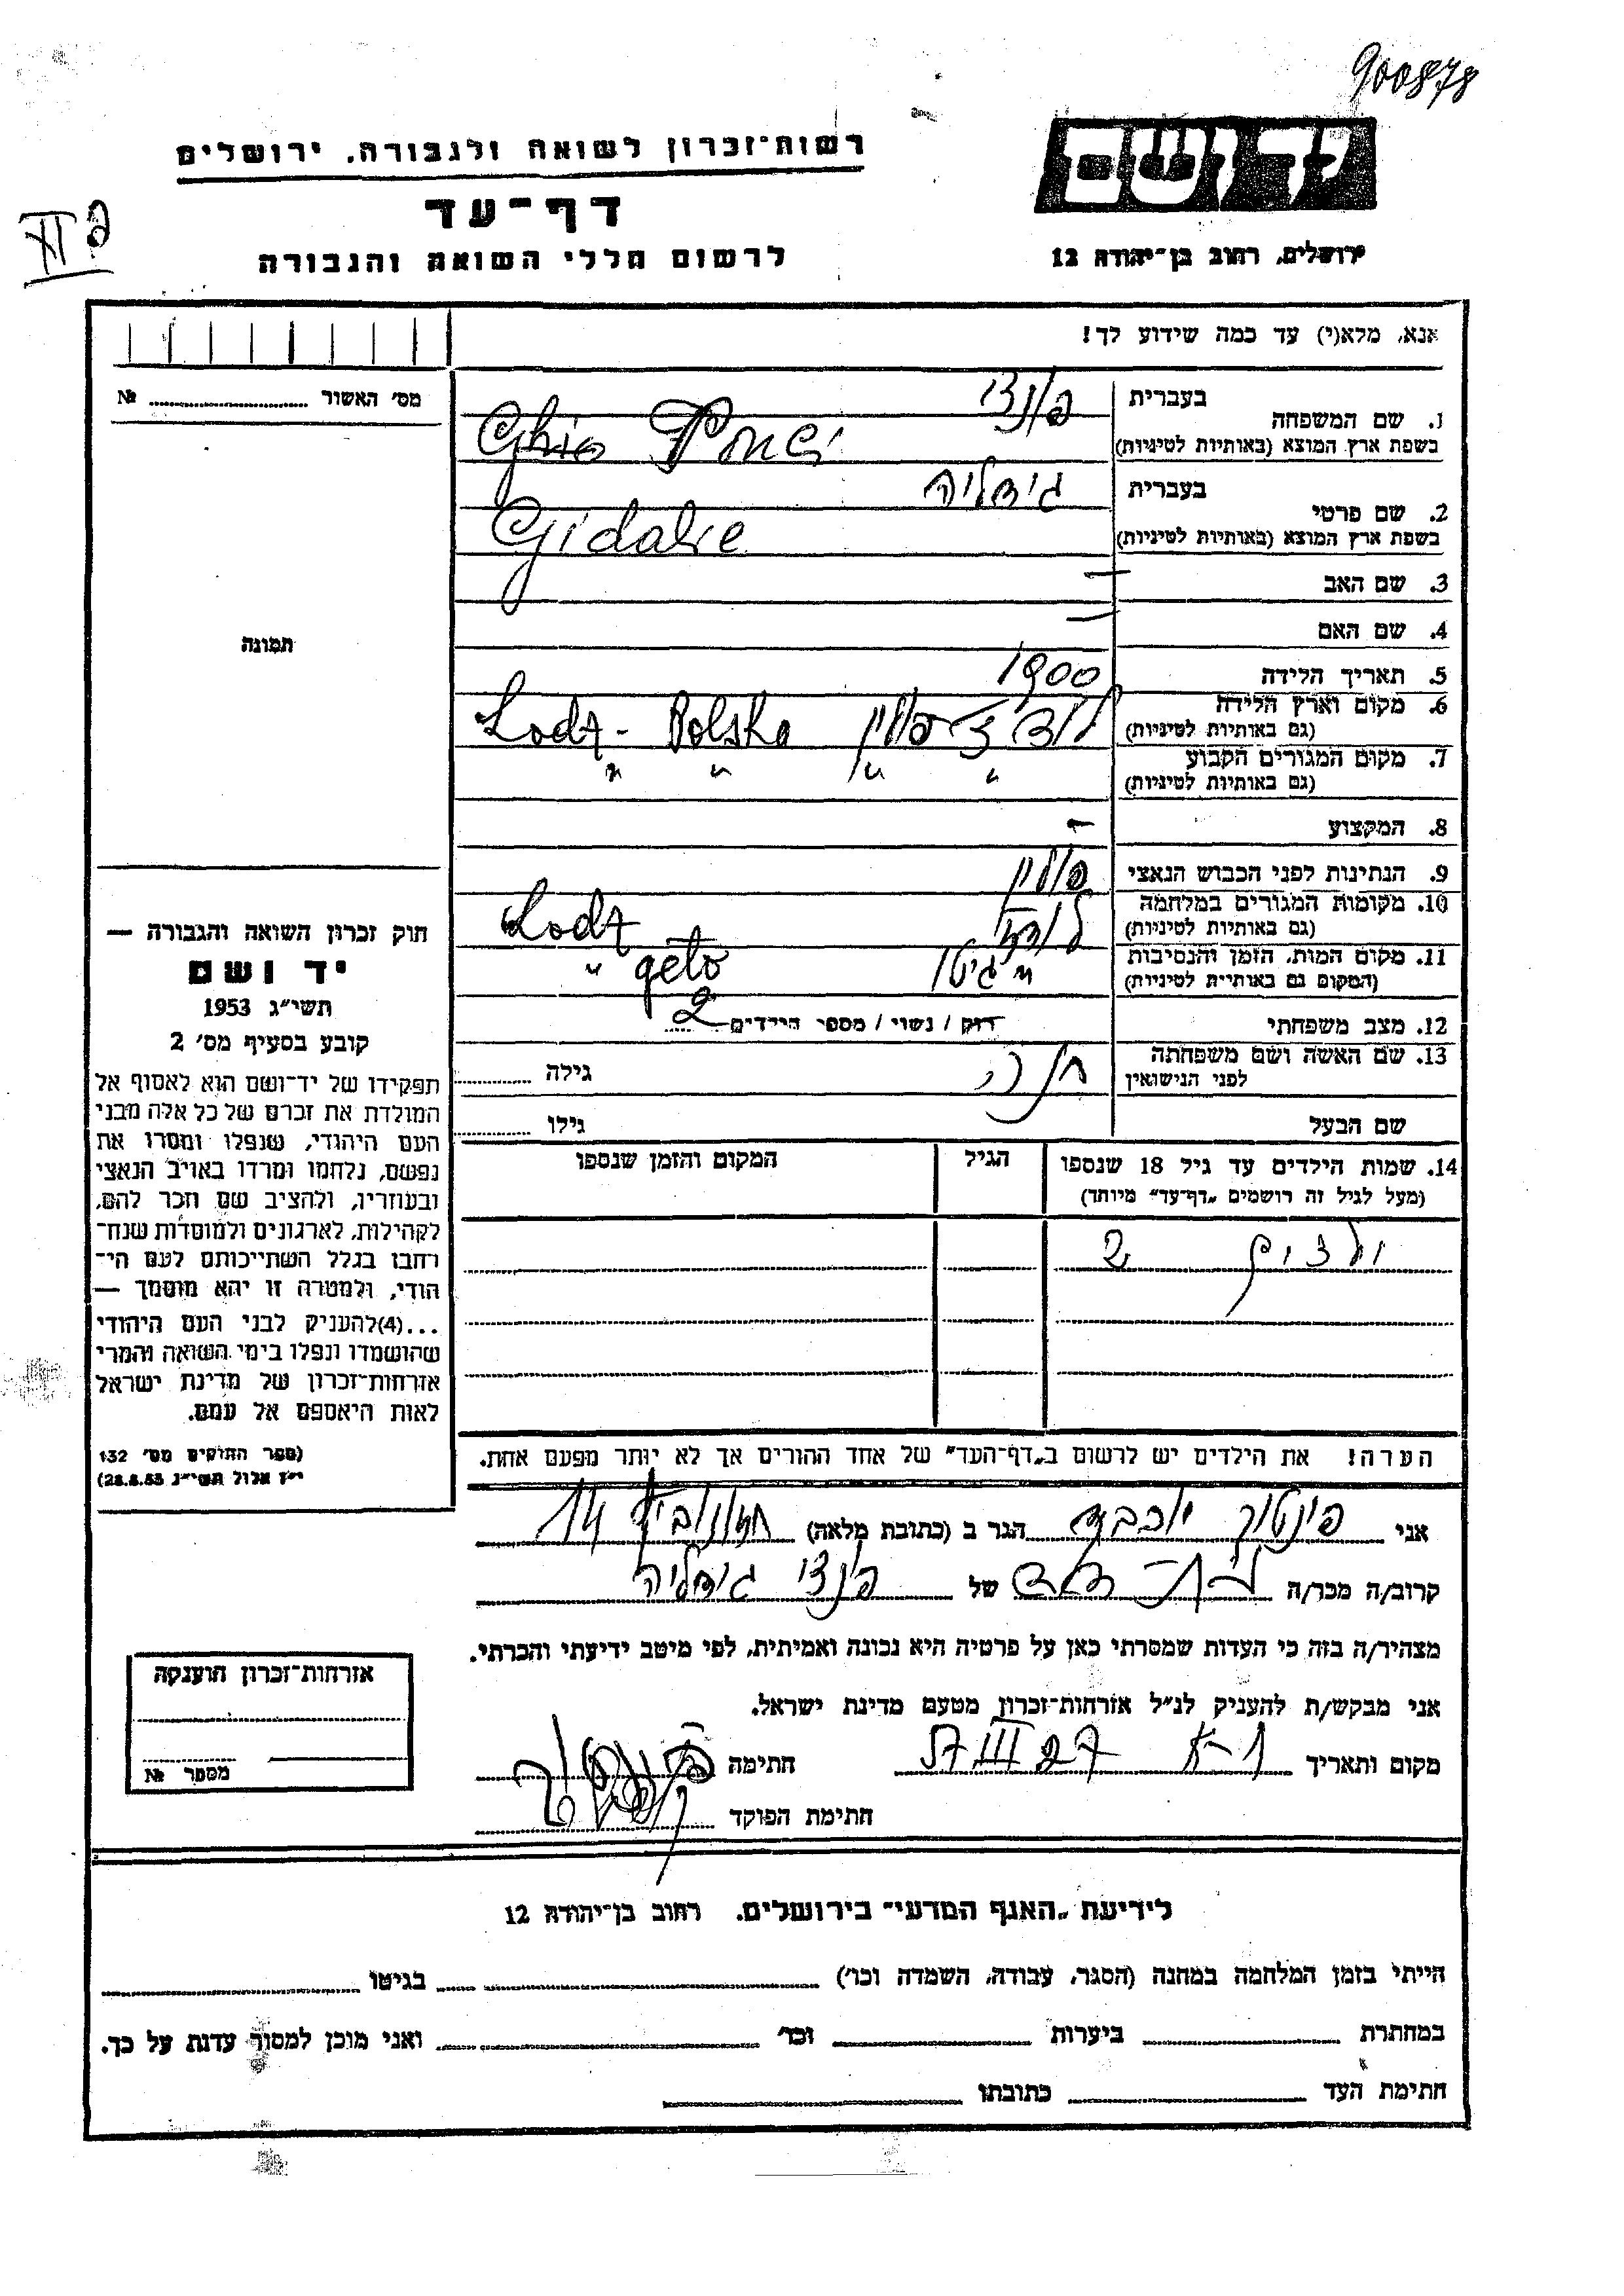 900878
רשות־זכרון לשואה ולגבורה. ירושלים
יד ושם
דף־עד
לרשום חללי השואה והגבורה
ירושלים, רחוב בן־יהודה 12
אנא, מלא(י) עד כמה שידוע לך!
מס׳ האשור № 
1. שם המשפחה בעברית פונצ׳
בשפת ארץ המוצא (באותיות לטיניות)
2. שם פרטי בעברית גידליה
בשפת ארץ המוצא (באותיות לטיניות) Gidalie
3. שם האב –
4. שם האם –
תמונה
5. תאריך הלידה 1900
6. מקום וארץ הלידה (גם באותיות לטיניות) פולין Lodz - Polska
7. מקום המגורים הקבוע (גם באותיות לטיניות) " " " "
8. המקצוע –
9. הנתינות לפני הכבוש הנאצי פולין
10. מקומות המגורים במלחמה (גם באותיות לטיניות) לודז Lodz
11. מקום המות, הזמן והנסיבות (המקום גם באותיות לטיניות) " גיטו " geto
12. מצב משפחתי רוק / נשוי / מספר הילדים 2
13. שם האשה ושם משפחתה לפני הנישואין חנה גילה
שם הבעל גילו
14. שמות הילדים עד גיל 18 שנספו (מעל לגיל זה רושמים „דף־עד״ מיוחד) הגיל המקום והזמן שנספו
ילדים 2
הערה! את הילדים יש לרשום ב„דף־העד״ של אחד ההורים אך לא יותר מפעם אחת.
חוק זכרון השואה והגבורה —
יד ושם
תשי״ג 1953
קובע בסעיף מס׳ 2
תפקידו של יד־ושם הוא לאסוף אל
המולדת את זכרם של כל אלה מבני
העם היהודי, שנפלו ומסרו את
נפשם, נלחמו ומרדו באויב הנאצי
ובעוזריו, ולהציב שם וזכר להם,
לקהילות, לארגונים ולמוסדות שנח־
רחבו בגלל השתייכותם לעם הי־
הודי, ולמטרה זו יהא מוסמך —
...(4)להעניק לבני העם היהודי
שהושמדו ונפלו בימי השואה והמרי
אזרחות־זכרון של מדינת ישראל
לאות היאספם אל עמם.
(ספר החוקים מס׳ 132
י״ז אלול תשי״ג 28.8.53)
אני פינטוך יוכבד הגר ב (כתובת מלאה) 14
קרוב/ה מכר/ה של פונצ׳ גידליה
מצהיר/ה בזה כי העדות שמסרתי כאן על פרטיה היא נכונה ואמיתית, לפי מיטב ידיעתי והכרתי.
אני מבקש/ת להעניק לנ״ל אזרחות־זכרון מטעם מדינת ישראל.
מקום ותאריך 27 III 57 חתימה
חתימת הפוקד
אזרחות־זכרון הוענקה
מספר №
לידיעת „האגף המדעי״ בירושלים. רחוב בן־יהודה 12
הייתי בזמן המלחמה במחנה (הסגר, עבודה, השמדה וכו׳) בגיטו
במחתרת ביערות וכו׳ ואני מוכן למסור עדות על כך.
חתימת העד כתובתו